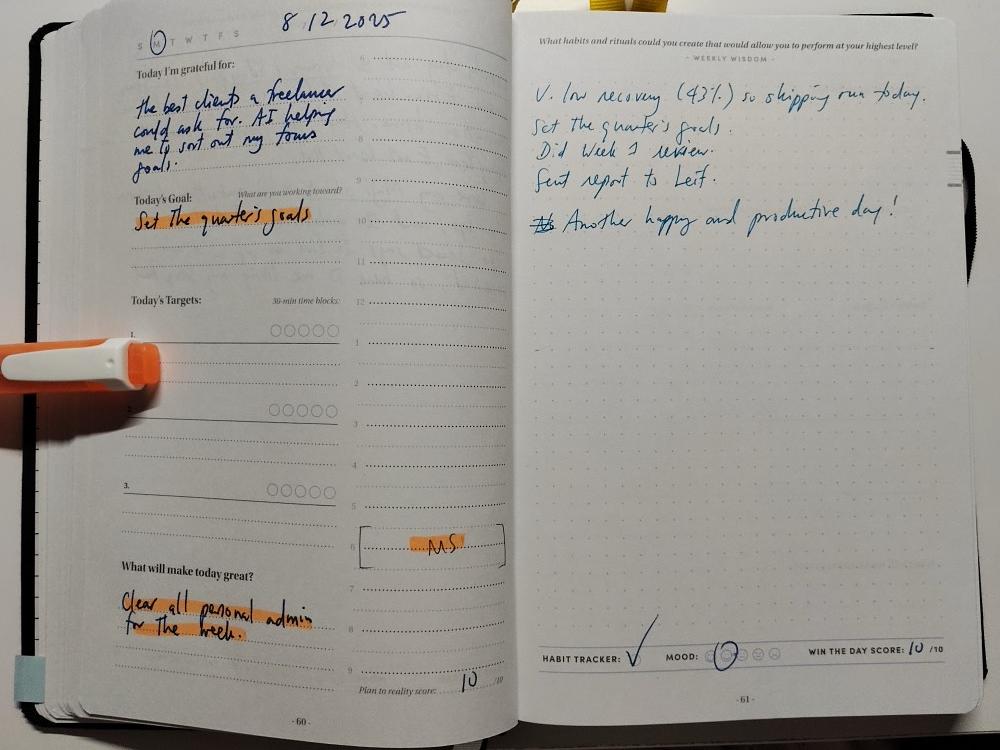 8 12 2025
S M T W T F S
Today I'm grateful for:
the best clients a freelancer
could ask for. AI helping
me to sort out my focus
goals.
Today's Goal: What are you working toward?
Set the quarter's goals
Today's Targets: 30-min time blocks:
1.
2.
3.
What will make today great?
Clear all personal admin
for the week.
6
7
8
9
10
11
12
1
2
3
4
5
6 MS
7
8
9
Plan to reality score: 10 /10
- 60 -
What habits and rituals could you create that would allow you to perform at your highest level?
- WEEKLY WISDOM -
V. low recovery (43%) so skipping run today.
Set the quarter's goals.
Did Week 1 review.
Sent report to Leif.
Another happy and productive day!
HABIT TRACKER: ✓ MOOD: WIN THE DAY SCORE: 10 /10
- 61 -